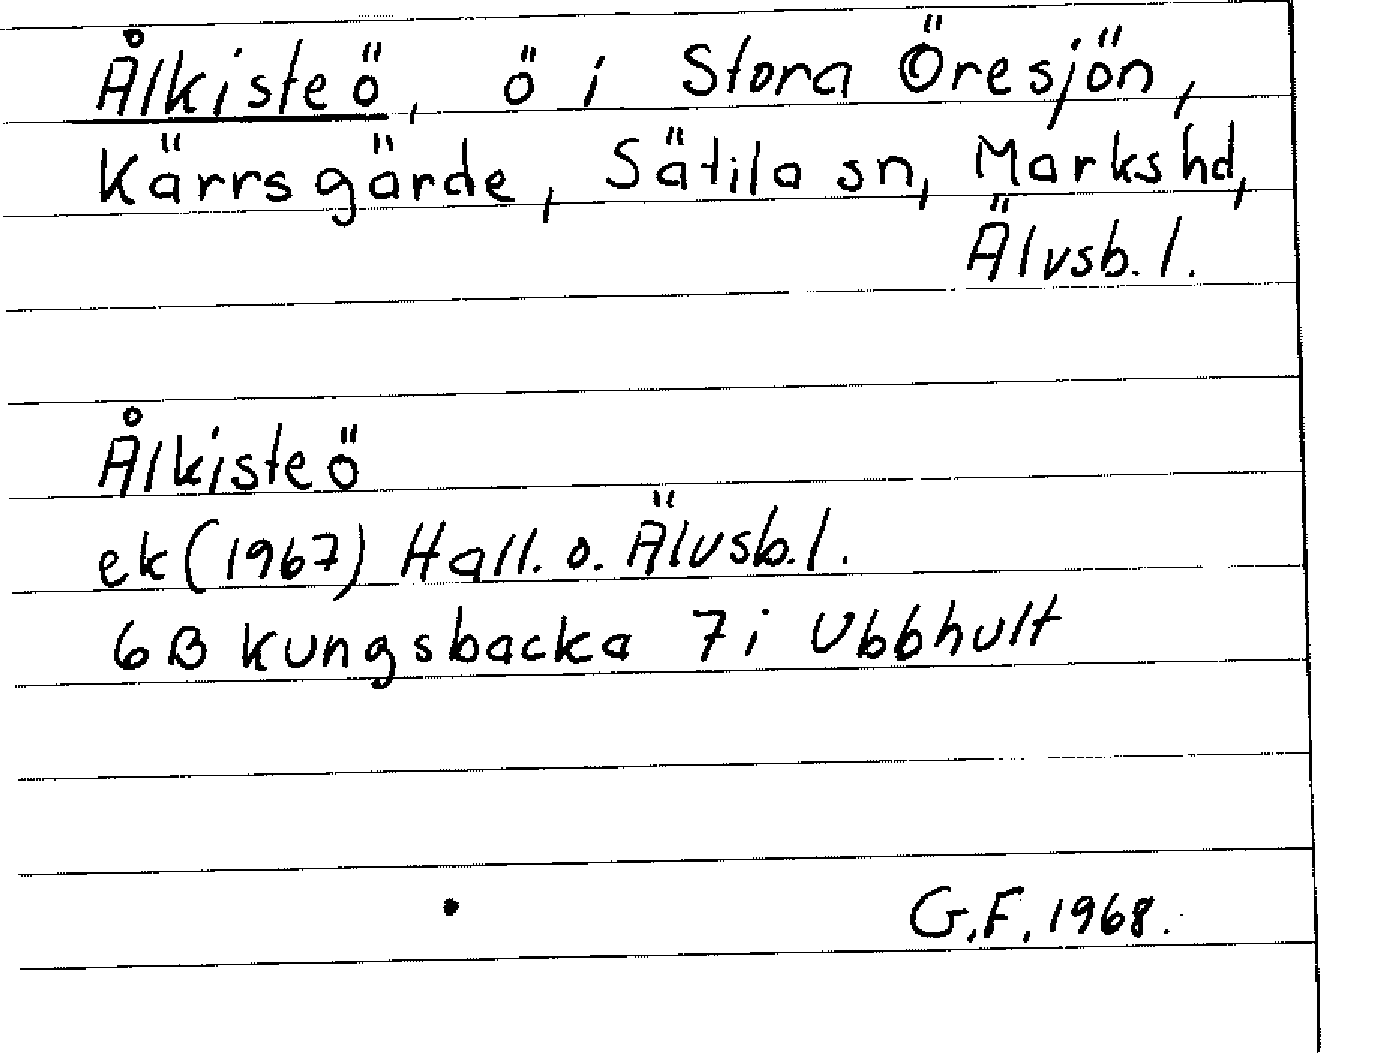 Ålkisteö, ö i Stora Öresjön,
Kärrsgärde, Sätila sn, Marks hd,
Älvsb. l.
Ålkisteö
ek (1967) Hall. o. Älvsb. l.
6B Kungsbacka 7i Ubbhult
G.F. 1968.